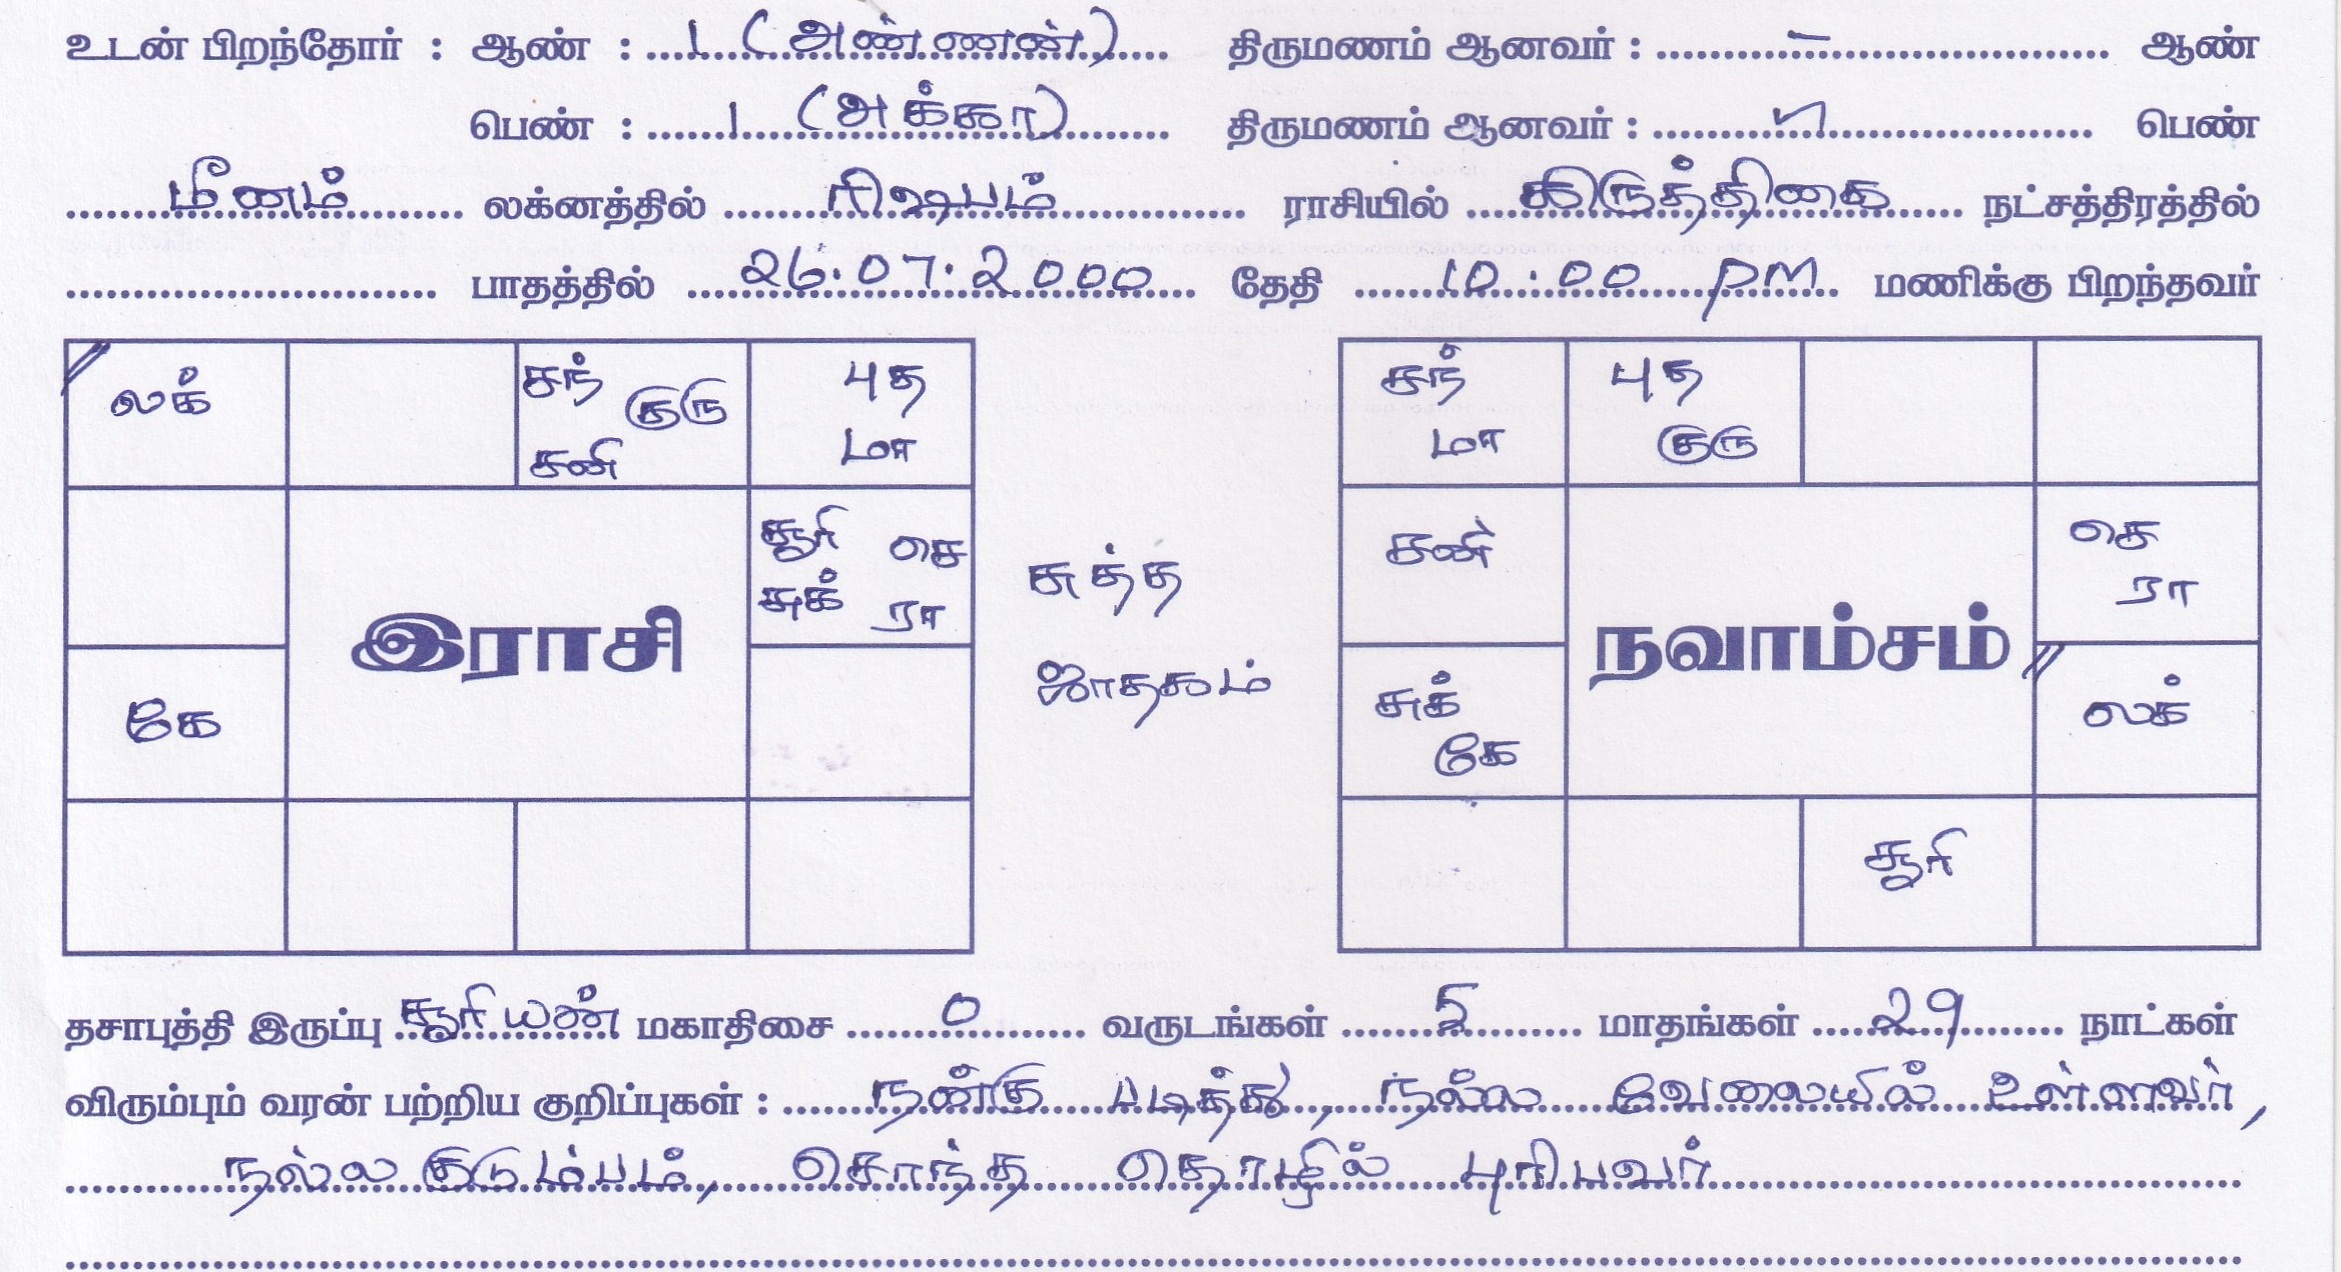 உடன் பிறந்தோர் : ஆண் : ... 1 (அண்ணன்) ... திருமணம் ஆனவர் : ... – ... ஆண்
பெண் : ... 1 (அக்கா) ... திருமணம் ஆனவர் : ... பெண்
... மீனம் ... லக்னத்தில் ... ரிஷபம் ... ராசியில் ... கிருத்திகை ... நட்சத்திரத்தில்
... பாதத்தில் ... 26.07.2000 ... தேதி ... 10:00 pm ... மணிக்கு பிறந்தவர்
லக் சந் குரு சனி புத மா
சூரி செ சுக் ரா
இராசி
கே
சுத்த
ஜாதகம்
சந் மா புத குரு
சனி செ ரா
நவாம்சம்
சுக் கே லக்
சூரி
தசாபுத்தி இருப்பு ... சூரியன் ... மகாதிசை ... 0 ... வருடங்கள் ... 5 ... மாதங்கள் ... 29 ... நாட்கள்
விரும்பும் வரன் பற்றிய குறிப்புகள் : ... நன்கு படித்து, நல்ல வேலையில் உள்ளவர்,
நல்ல குடும்பம், சொந்த தொழில் புரிபவர்